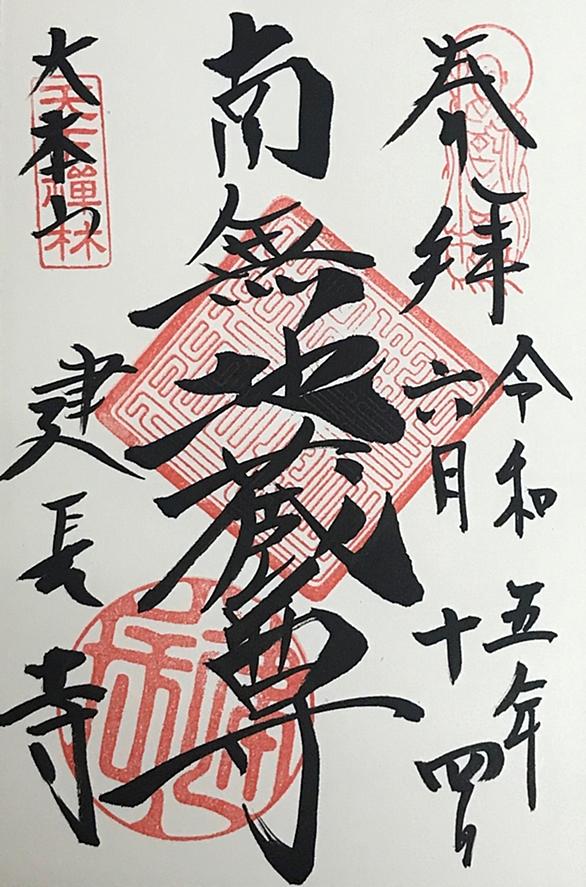 奉拝
令和五年
六月十四日
南無地蔵尊
大本山
天下禪林
建長寺